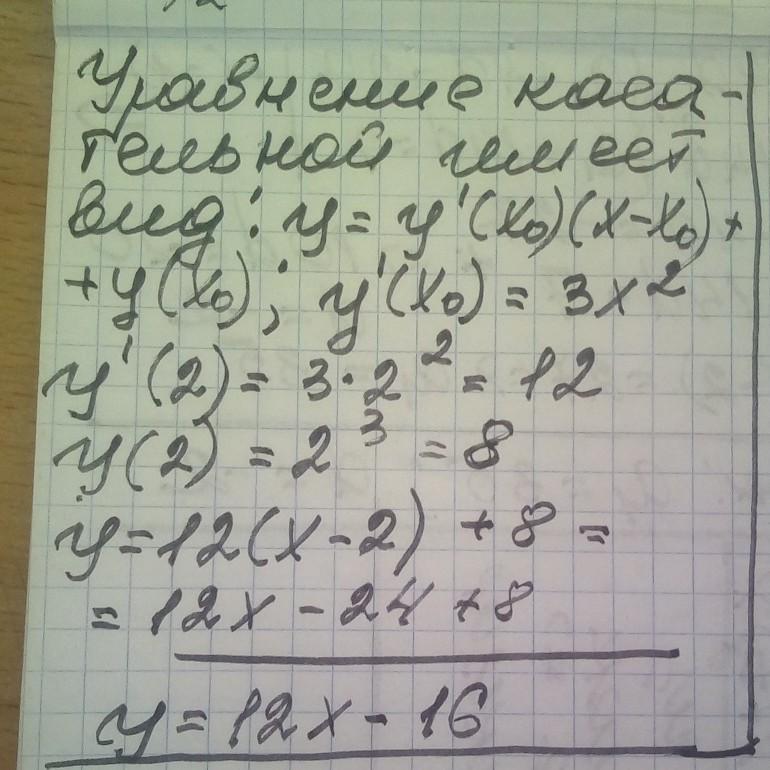 Уравнение каса-
тельной имеет
вид: y = y'(x₀)(x-x₀)+
+y(x₀); y'(x₀) = 3x²
y'(2) = 3·2² = 12
y(2) = 2³ = 8
y = 12(x-2) + 8 =
= 12x - 24 + 8
y = 12x - 16